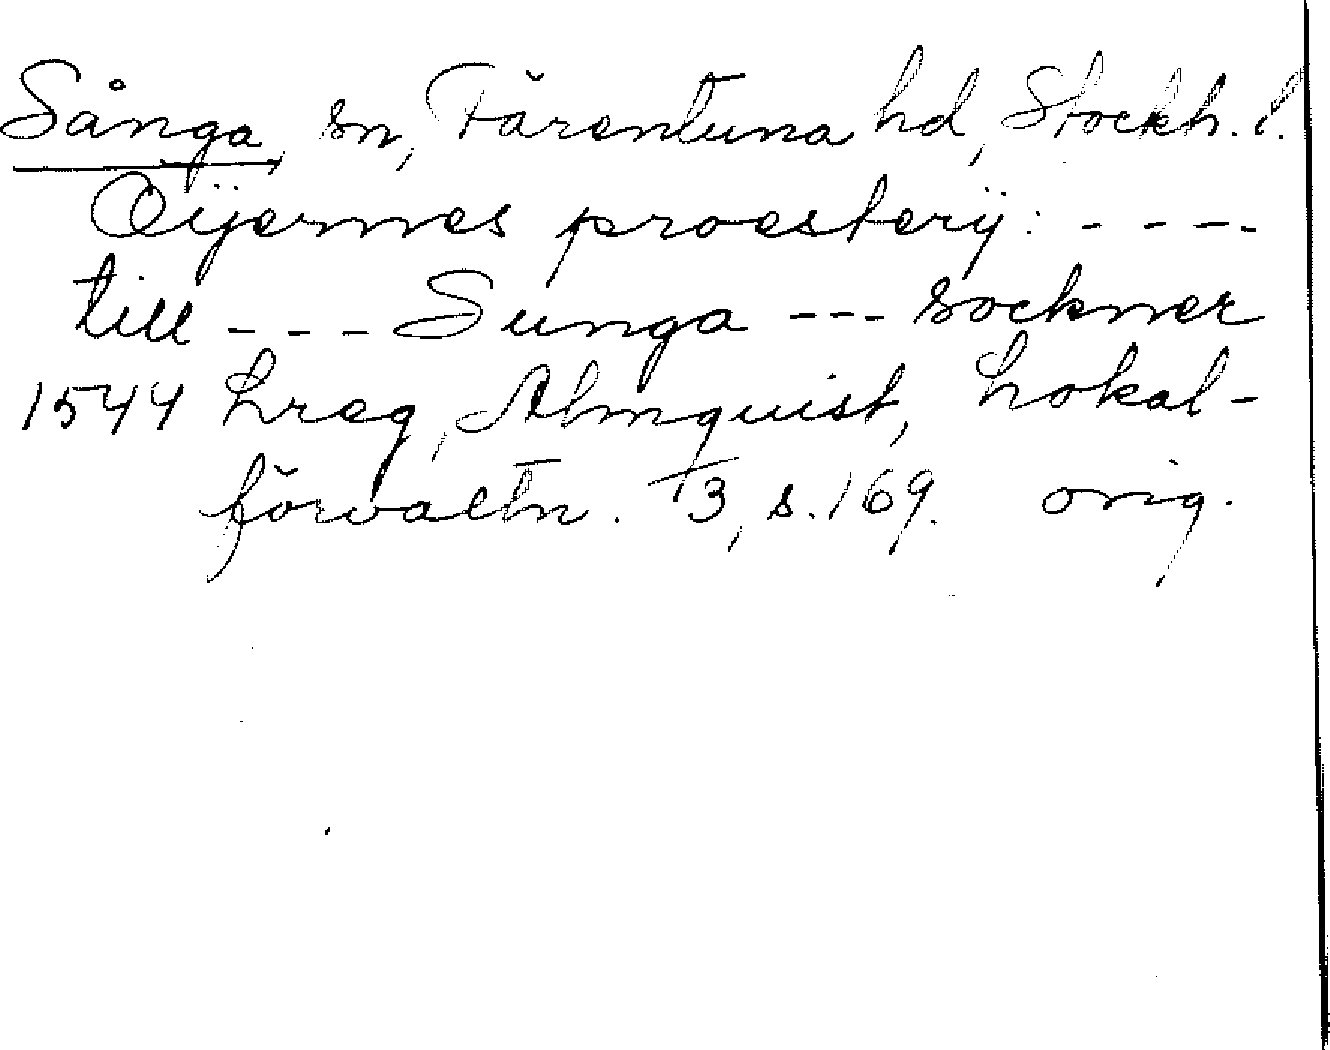 Sånga, sn, Färentuna hd, Stockh. l.
Öijernes proesterij: ----
till --- Sunga --- sockner
1544 Lreg, Almquist, Lokal-
förvaltn. I3, s. 169. orig.